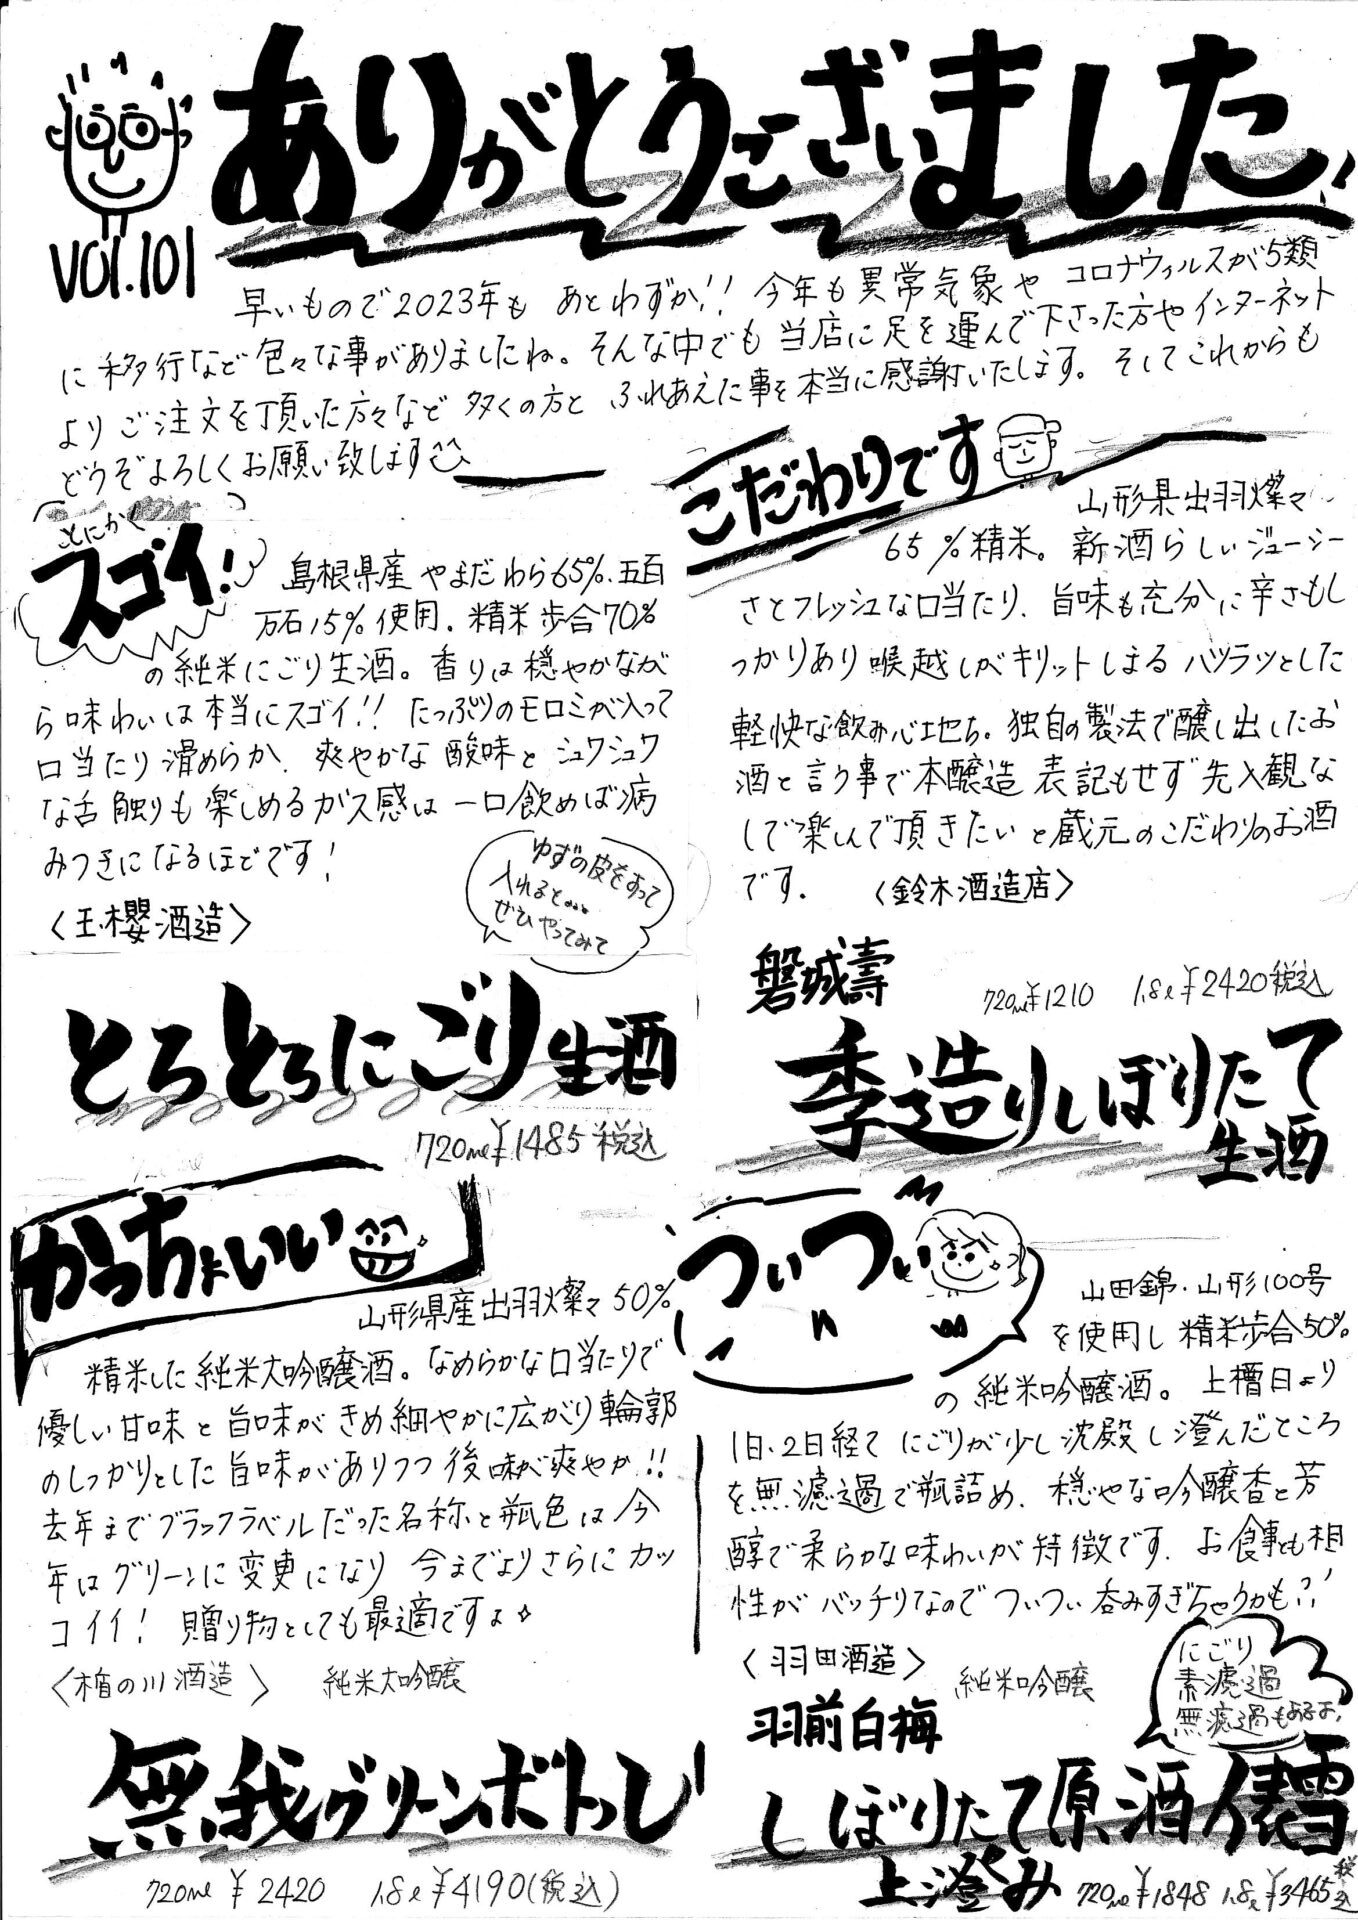 ありがとうございました!
VOl.101
早いもので2023年も あとわずか!! 今年も異常気象や コロナウィルスが5類
に移行など色々な事がありましたね。そんな中でも 当店に足を運んで下さった方やインターネット
よりご注文を頂いた方々など 多くの方と ふれあえた事を本当に感謝いたします。そしてこれからも
どうぞよろしくお願い致します
とにかく
スゴイ!
島根県産 やまだわら65%、五百
万石15%使用。精米歩合70%
の純米にごり生酒。香りは穏やかなが
ら味わいは本当にスゴイ!! たっぷりのモロミが入って
口当たり滑めらか、爽やかな 酸味と シュワシュワ
な舌触りも楽しめるガス感は 一口飲めば病
みつきになるほどです!
〈玉櫻酒造〉
ゆずの皮をすって
入れると...
ぜひやってみて
とろとろにごり生酒
720ml ¥1485 税込
こだわりです
山形県出羽燦々
65%精米。新酒らしいジューシー
さとフレッシュな口当たり、旨味も充分に辛さもし
っかりあり喉越しがキリットしまる ハツラツとした
軽快な飲み心地。独自の製法で醸し出したお
酒と言う事で本醸造 表記もせず先入観な
しで楽しんで頂きたいと蔵元のこだわりのお酒
です。 〈鈴木酒造店〉
磐城壽
720ml ¥1210 1.8l ¥2420税込
季造りしぼりたて
生酒
かっちょいい
山形県産出羽燦々50%
精米した純米大吟醸酒。なめらかな口当たりで
優しい甘味と旨味がきめ細やかに広がり輪郭
のしっかりとした旨味がありつつ後味が爽やか!!
去年までブラックラベルだった名称と瓶色は今
年はグリーンに変更になり 今までよりさらにカッ
コイイ! 贈り物としても最適ですよ
〈楯の川酒造〉 純米大吟醸
無我グリーンボトっし
720ml ¥2420 1.8l ¥4190(税込)
ついつい
山田錦・山形100号
を使用し精米歩合50%
の純米吟醸酒。上槽日より
1日、2日経て にごりが少し沈殿し澄んだところ
を無濾過で瓶詰め、穏やかな吟醸香と芳
醇で柔らかな味わいが特徴です。お食事とも相
性がバッチリなのでついつい呑みすぎちゃうかも?!
〈羽田酒造〉
純米吟醸
にごり
素濾過
無濾過もあるよ!
羽前白梅
しぼりたて原酒俵雪
上澄み 720ml ¥1848 1.8l ¥3465税込